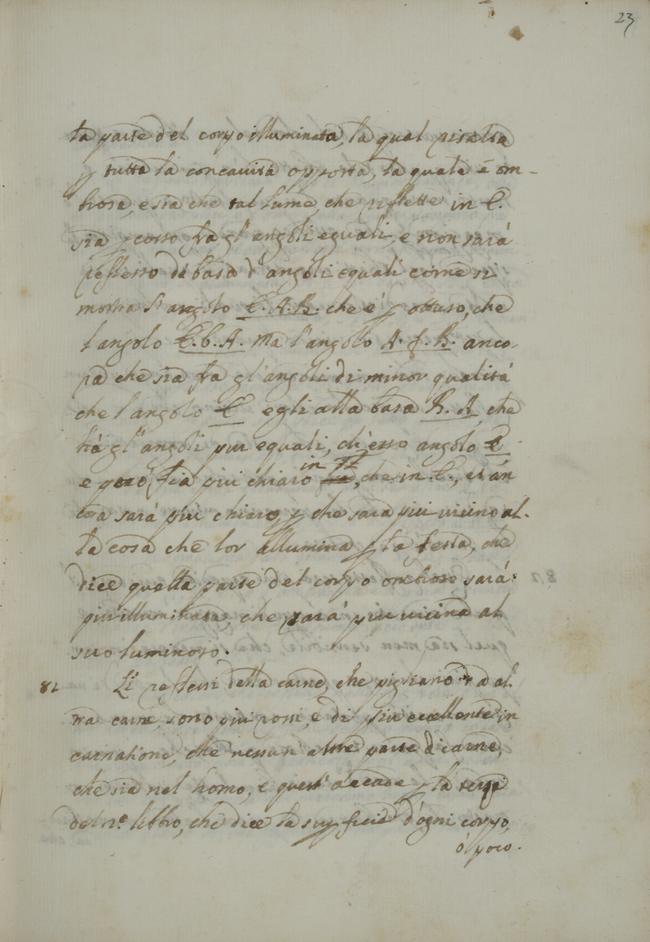 23
la parte del corpo illuminata, la qual risalta
p tutta la concavità opposta, la quale è om-
brosa, e sia che tal lume, che riflette in C.
sia p corso fra gl' angoli eguali, e non sarà
reflesso di basa d' angoli eguali come si
mostra l' angolo C. A. B. che è p ottuso, che
l'angolo C. b. A. ma l'angolo A. f. B. anco-
ra che sia fra gl'angoli di minor qualità
che l'angolo C egli alla basa B. A. che
hà gl' angoli più eguali, ch'esso angolo C
e però fia più chiaro in che in C., et an
cora sarà più chiaro, p che sarà più vicino al-
la cosa che lor allumina p la sesta, che
dice quella parte del corpo ombroso sarà
più illuminata, che sarà più vicina al
suo luminoso.
82 Li reflessi della carne, che pigliano da al-
tra carne sono più rossi, e di più eccellente in
carnatione, che nessun altra parte di carne,
che sia nel homo, e quest' accade p la terza
del 2º. libro, che dice la superficie d'ogni corpo,
ò poco.